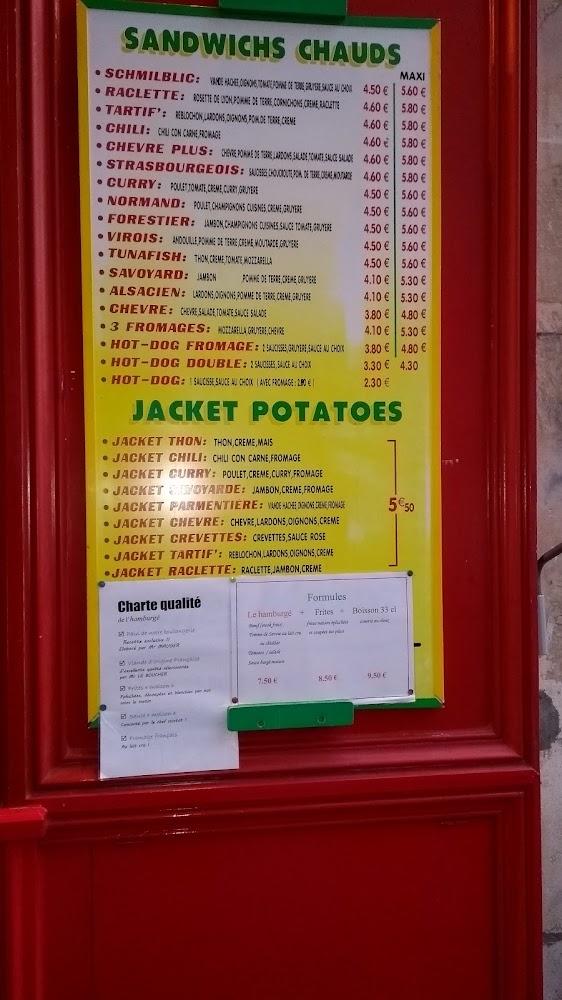 SANDWICHS CHAUDS
MAXI
• SCHMILBLIC: VIANDE HACHEE,OIGNONS,TOMATE,POMME DE TERRE,GRUYERE,SAUCE AU CHOIX 4.50 € 5.60 €
• RACLETTE: ROSETTE DE LYON,POMME DE TERRE,CORNICHONS,CREME,RACLETTE 4.60 € 5.80 €
• TARTIF': REBLOCHON,LARDONS,OIGNONS,POM.DE TERRE,CREME 4.60 € 5.80 €
• CHILI: CHILI CON CARNE,FROMAGE 4.60 € 5.80 €
• CHEVRE PLUS: CHEVRE,POMME DE TERRE,LARDONS,SALADE,TOMATE,SAUCE SALADE 4.60 € 5.80 €
• STRASBOURGEOIS: SAUCISSES,CHOUCROUTE,POM. DE TERRE,CREME,MOUTARDE 4.60 € 5.80 €
• CURRY: POULET,TOMATE,CREME,CURRY,GRUYERE 4.50 € 5.60 €
• NORMAND: POULET,CHAMPIGNONS CUISINES,CREME,GRUYERE 4.50 € 5.60 €
• FORESTIER: JAMBON,CHAMPIGNONS CUISINES,SAUCE TOMATE,GRUYERE 4.50 € 5.60 €
• VIROIS: ANDOUILLE,POMME DE TERRE,CREME,MOUTARDE,GRUYERE 4.50 € 5.60 €
• TUNAFISH: THON,CREME,TOMATE,MOZZARELLA 4.50 € 5.60 €
• SAVOYARD: JAMBON POMME DE TERRE,CREME,GRUYERE 4.10 € 5.30 €
• ALSACIEN: LARDONS,OIGNONS,POMME DE TERRE,CREME,GRUYERE 4.10 € 5.30 €
• CHEVRE: CHEVRE,SALADE,TOMATE,SAUCE SALADE 3.80 € 4.80 €
• 3 FROMAGES: MOZZARELLA,GRUYERE,CHEVRE 4.10 € 5.30 €
• HOT-DOG FROMAGE: 2 SAUCISSES,GRUYERE,SAUCE AU CHOIX 3.80 € 4.80 €
• HOT-DOG DOUBLE: 2 SAUCISSES, SAUCE AU CHOIX 3.30 € 4.30
• HOT-DOG: 1 SAUCISSE,SAUCE AU CHOIX ( AVEC FROMAGE : 2.80 € ) 2.30 €
JACKET POTATOES
• JACKET THON: THON,CREME,MAIS
• JACKET CHILI: CHILI CON CARNE,FROMAGE
• JACKET CURRY: POULET,CREME,CURRY,FROMAGE
• JACKET SAVOYARDE: JAMBON,CREME,FROMAGE
• JACKET PARMENTIERE: VIANDE HACHEE,OIGNONS,CREME,FROMAGE
5€50
• JACKET CHEVRE: CHEVRE,LARDONS,OIGNONS,CREME
• JACKET CREVETTES: CREVETTES,SAUCE ROSE
• JACKET TARTIF': REBLOCHON,LARDONS,OIGNONS,CREME
• JACKET RACLETTE: RACLETTE,JAMBON,CREME
Charte qualité
de l'hamburgé
Pain de notre boulangerie
Recette exclusive !!
Elaboré par Mr
Viande d'origine Française
D'excellente qualité sélectionnée
par Mr LE BOUCHER
Frites « maison »
Epluchées, découpées et blanchies par nos
soins le matin
Sauce « maison »
Concocté par le chef crocket !
Fromage français
Au lait cru !
Formules
Le hamburgé + Frites + Boisson 33 cl
Bœuf (steak frais)
Tomme de Savoie au lait cru
ou cheddar
Tomates / salade
Sauce burgé maison
frites maison épluchées
et coupées sur place
7.50 € 8.50 € 9.50 €